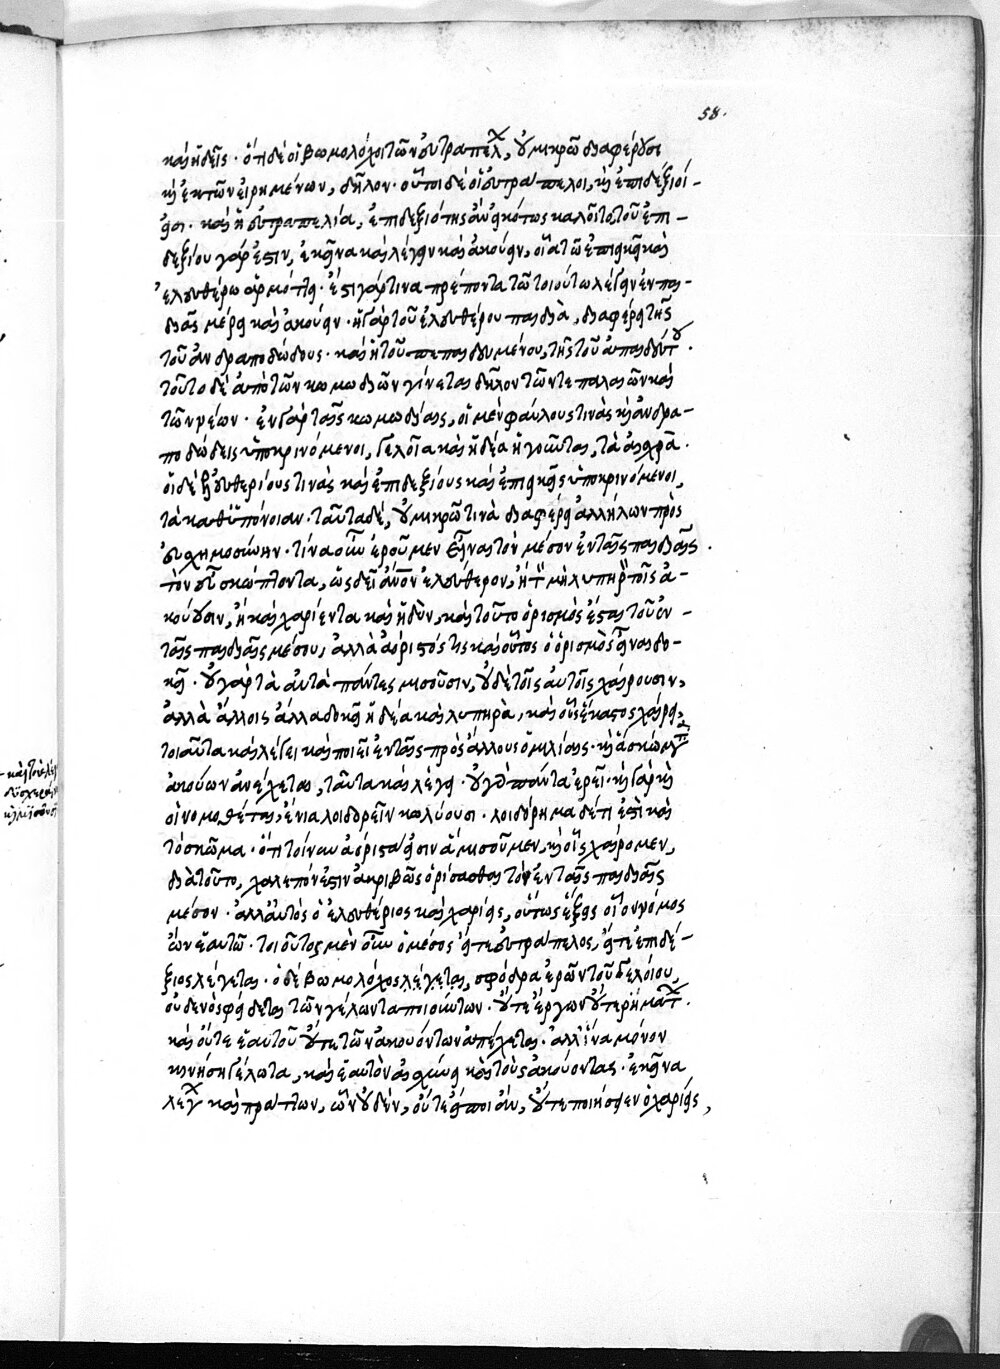 58.
καὶ ἡδεῖς. ὅτι δὲ οἱ βωμολόχοι τῶν εὐτραπέλ, οὐ μικρῶ διαφέρουσι
κὴ ἐκ τῶν εἰρημένων, δῆλον. οὗτοι δὲ οἱ εὐτράπελοι, κὴ ἐπιδέξιοί
εἰσι. καὶ ἡ εὐτραπελία, ἐπιδεξιότης ἂν εἰκότως καλοῖτο τοῦ ἐπι-
δεξίου γάρ ἐστιν, ἐκεῖνα καὶ λέγειν καὶ ἀκούειν, οἷα τῶ ἐπιεικεῖ καὶ
ἐλευθέρω ἁρμόττει. ἔστι γάρ τινα πρέποντα τῶ τοιούτω λέγειν ἐν παι-
διᾶς μέρει καὶ ἀκούειν. ἡ γὰρ τοῦ ἐλευθέρου παιδιὰ, διαφέρει τῆς
τοῦ ἀνδραποδώδους. καὶ ἡ τοῦ πεπαιδευμένου, τῆς τοῦ ἀπαιδεύτου.
τοῦτο δὲ ἀπὸ τῶν κωμωδιῶν γίνεται δῆλον τῶν τε παλαιῶν καὶ
τῶν νέων. ἐν γὰρ ταῖς κωμωδίαις, οἱ μὲν φαύλους τινὰς κὴ ἀνδρα-
ποδώδεις ὑποκρινόμενοι, γελοῖα καὶ ἡδέα ἡγοῦνται, τὰ αἰσχρά.
οἱ δὲ ἐλευθερίους τινὰς καὶ ἐπιδεξίους καὶ ἐπιεικεῖς ὑποκρινόμενοι,
τὰ καθ' ὑπόνοιαν. ταῦτα δὲ, οὐ μικρῶ τινὰ διαφέρει ἀλλήλων πρὸς
εὐσχημοσύνην. τίνα οὖν ἐροῦμεν εἶναι τὸν μέσον ἐν ταῖς παιδιαῖς.
τὸν εὖ σκώπτοντα, ὡς δεῖ ἂνον ἐλεύθερον, ἢ τὸ μὴ λυπηρὸ τοῖς ἀ-
κούουσιν, ἢ καὶ χαρίεντα καὶ ἡδὺν, καὶ τοῦτο ὁρισμὸς ἔσται τοῦ ἐν
ταῖς παιδιαῖς μέσου, ἀλλὰ ἀόριστός τις καὶ οὗτος ὁ ὁρισμὸς εἶναι δο-
κεῖ. οὐ γὰρ τὰ αὐτὰ πάντες μισοῦσιν, οὐδὲ τοῖς αὐτοῖς χαίρουσιν,
ἀλλὰ ἄλλοις ἄλλα δοκεῖ ἡδέα καὶ λυπηρὰ, καὶ οἷς ἕκαστος χαίρει
τοιαῦτα καὶ λέγει καὶ ποιεῖ ἐν ταῖς πρὸς ἄλλους ὁμιλίαις. κὴ ἃ σκώμματ
ἀκούων ἀνέχεται, ταῦτα καὶ λέγει. οὐ γὰρ πάντα ἐρεῖ. κὴ γὰρ κὴ
οἱ νομοθέται, ἔνια λοιδορεῖν κωλύουσι. λοιδόρημα δέ τι ἐστὶ καὶ
τὸ σκῶμμα. ὅτι τοίνυν ἀόριστά εἰσιν ἃ μισοῦμεν, κὴ οἷς χαίρομεν,
διὰ τοῦτο, χαλεπόν ἐστιν ἀκριβῶς ὁρίσασθαι τὸν ἐν ταῖς παιδιαῖς
μέσον. ἀλλ' αὐτὸς ὁ ἐλευθέριος καὶ χαρίεις, οὕτως ἕξει οἷον νόμος
ὢν ἑαυτῶ. τοιοῦτος μὲν οὖν ὁ μέσος εἴτε εὐτράπελος, εἴτε ἐπιδέ-
ξιος λέγεται. ὁ δὲ βωμολόχος λέγεται, σφόδρα ἐρῶν τοῦ γελοίου,
οὐδενὸς φείδεται τῶν γέλωντα ποιούντων. οὔτε ἔργων οὔτε ῥημάτ.
καὶ οὔτε ἑαυτοῦ οὔτε τῶν ἀκουόντων ἀπέχεται. ἀλλ' ἵνα μόνον
κινήση γέλωτα, καὶ ἑαυτὸν αἰσχύνει καὶ τοὺς ἀκούοντας. ἐκεῖνα
λέγ καὶ πράττων, ὧν οὐδὲν, οὔτε εἴποι ἂν, οὔτε ποιήσειεν ὁ χαρίεις,